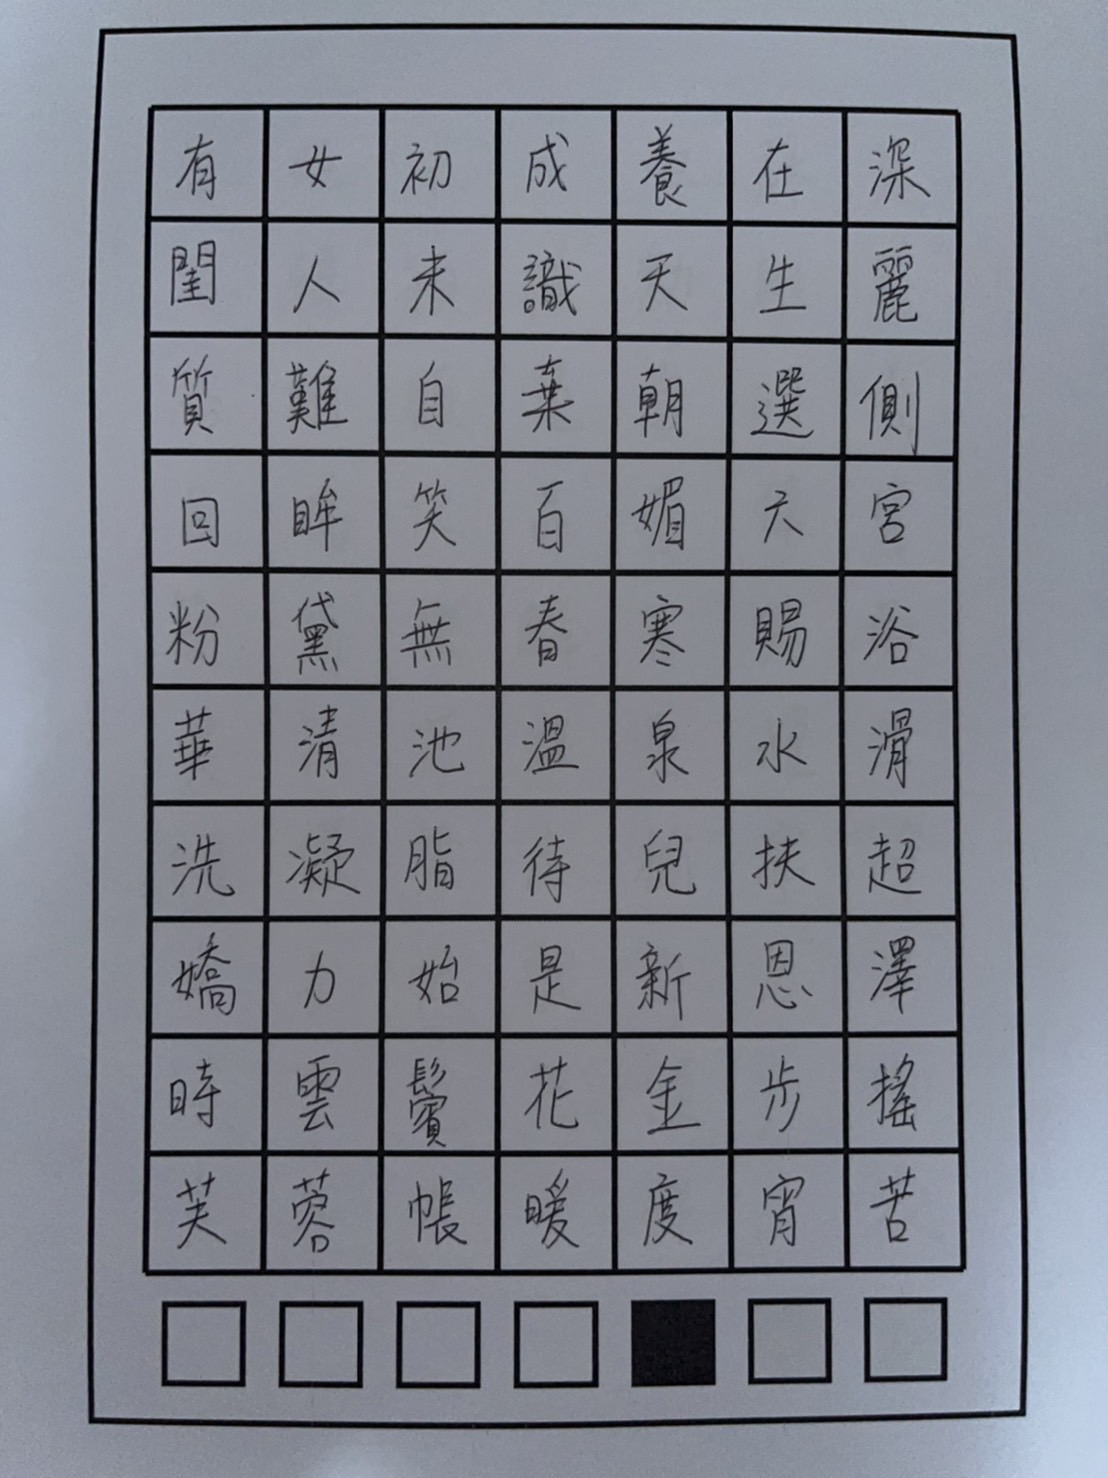 有女初成養在深
閨人未識天生麗
質難自棄朝選側
回眸笑百媚六宮
粉黛無春寒賜浴
華清池溫泉水滑
洗凝脂待兒扶超
嬌力始是新恩澤
時雲鬢花金步搖
芙蓉帳暖度宵苦